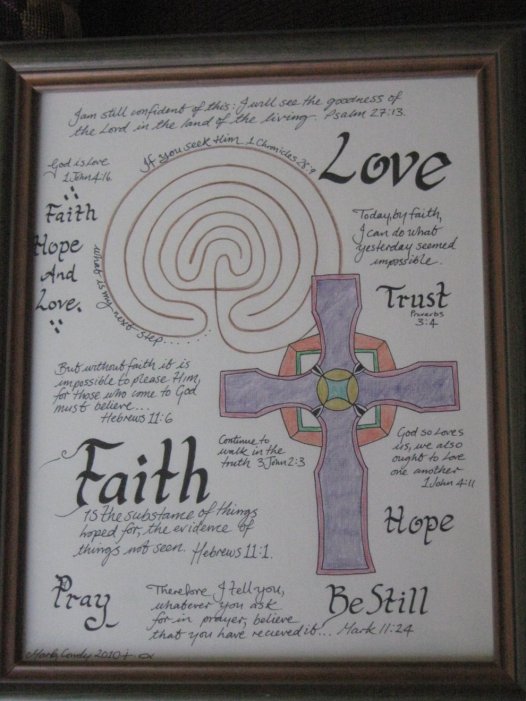 I am still confident of this: I will see the goodness of
the Lord in the land of the living. Psalm 27:13.
If you seek Him 1 Chronicles 28:9
Love
God is Love
1 John 4:16.
Faith
Hope
And
Love.
Today, by faith,
I can do what
yesterday seemed
impossible.
what is my next step.......
Trust
Proverbs
3:4
But without faith it is
impossible to please Him,
for those who come to God
must believe...
Hebrews 11:6
Continue to
walk in the
truth 3 John 2:3
God so loves
us, we also
ought to love
one another
1 John 4:11
Faith
is the substance of things
hoped for, the evidence of
things not seen. Hebrews 11:1.
Hope
Pray
Therefore I tell you,
whatever you ask
for in prayer, believe
that you have recieved it... Mark 11:24
Be Still
2010